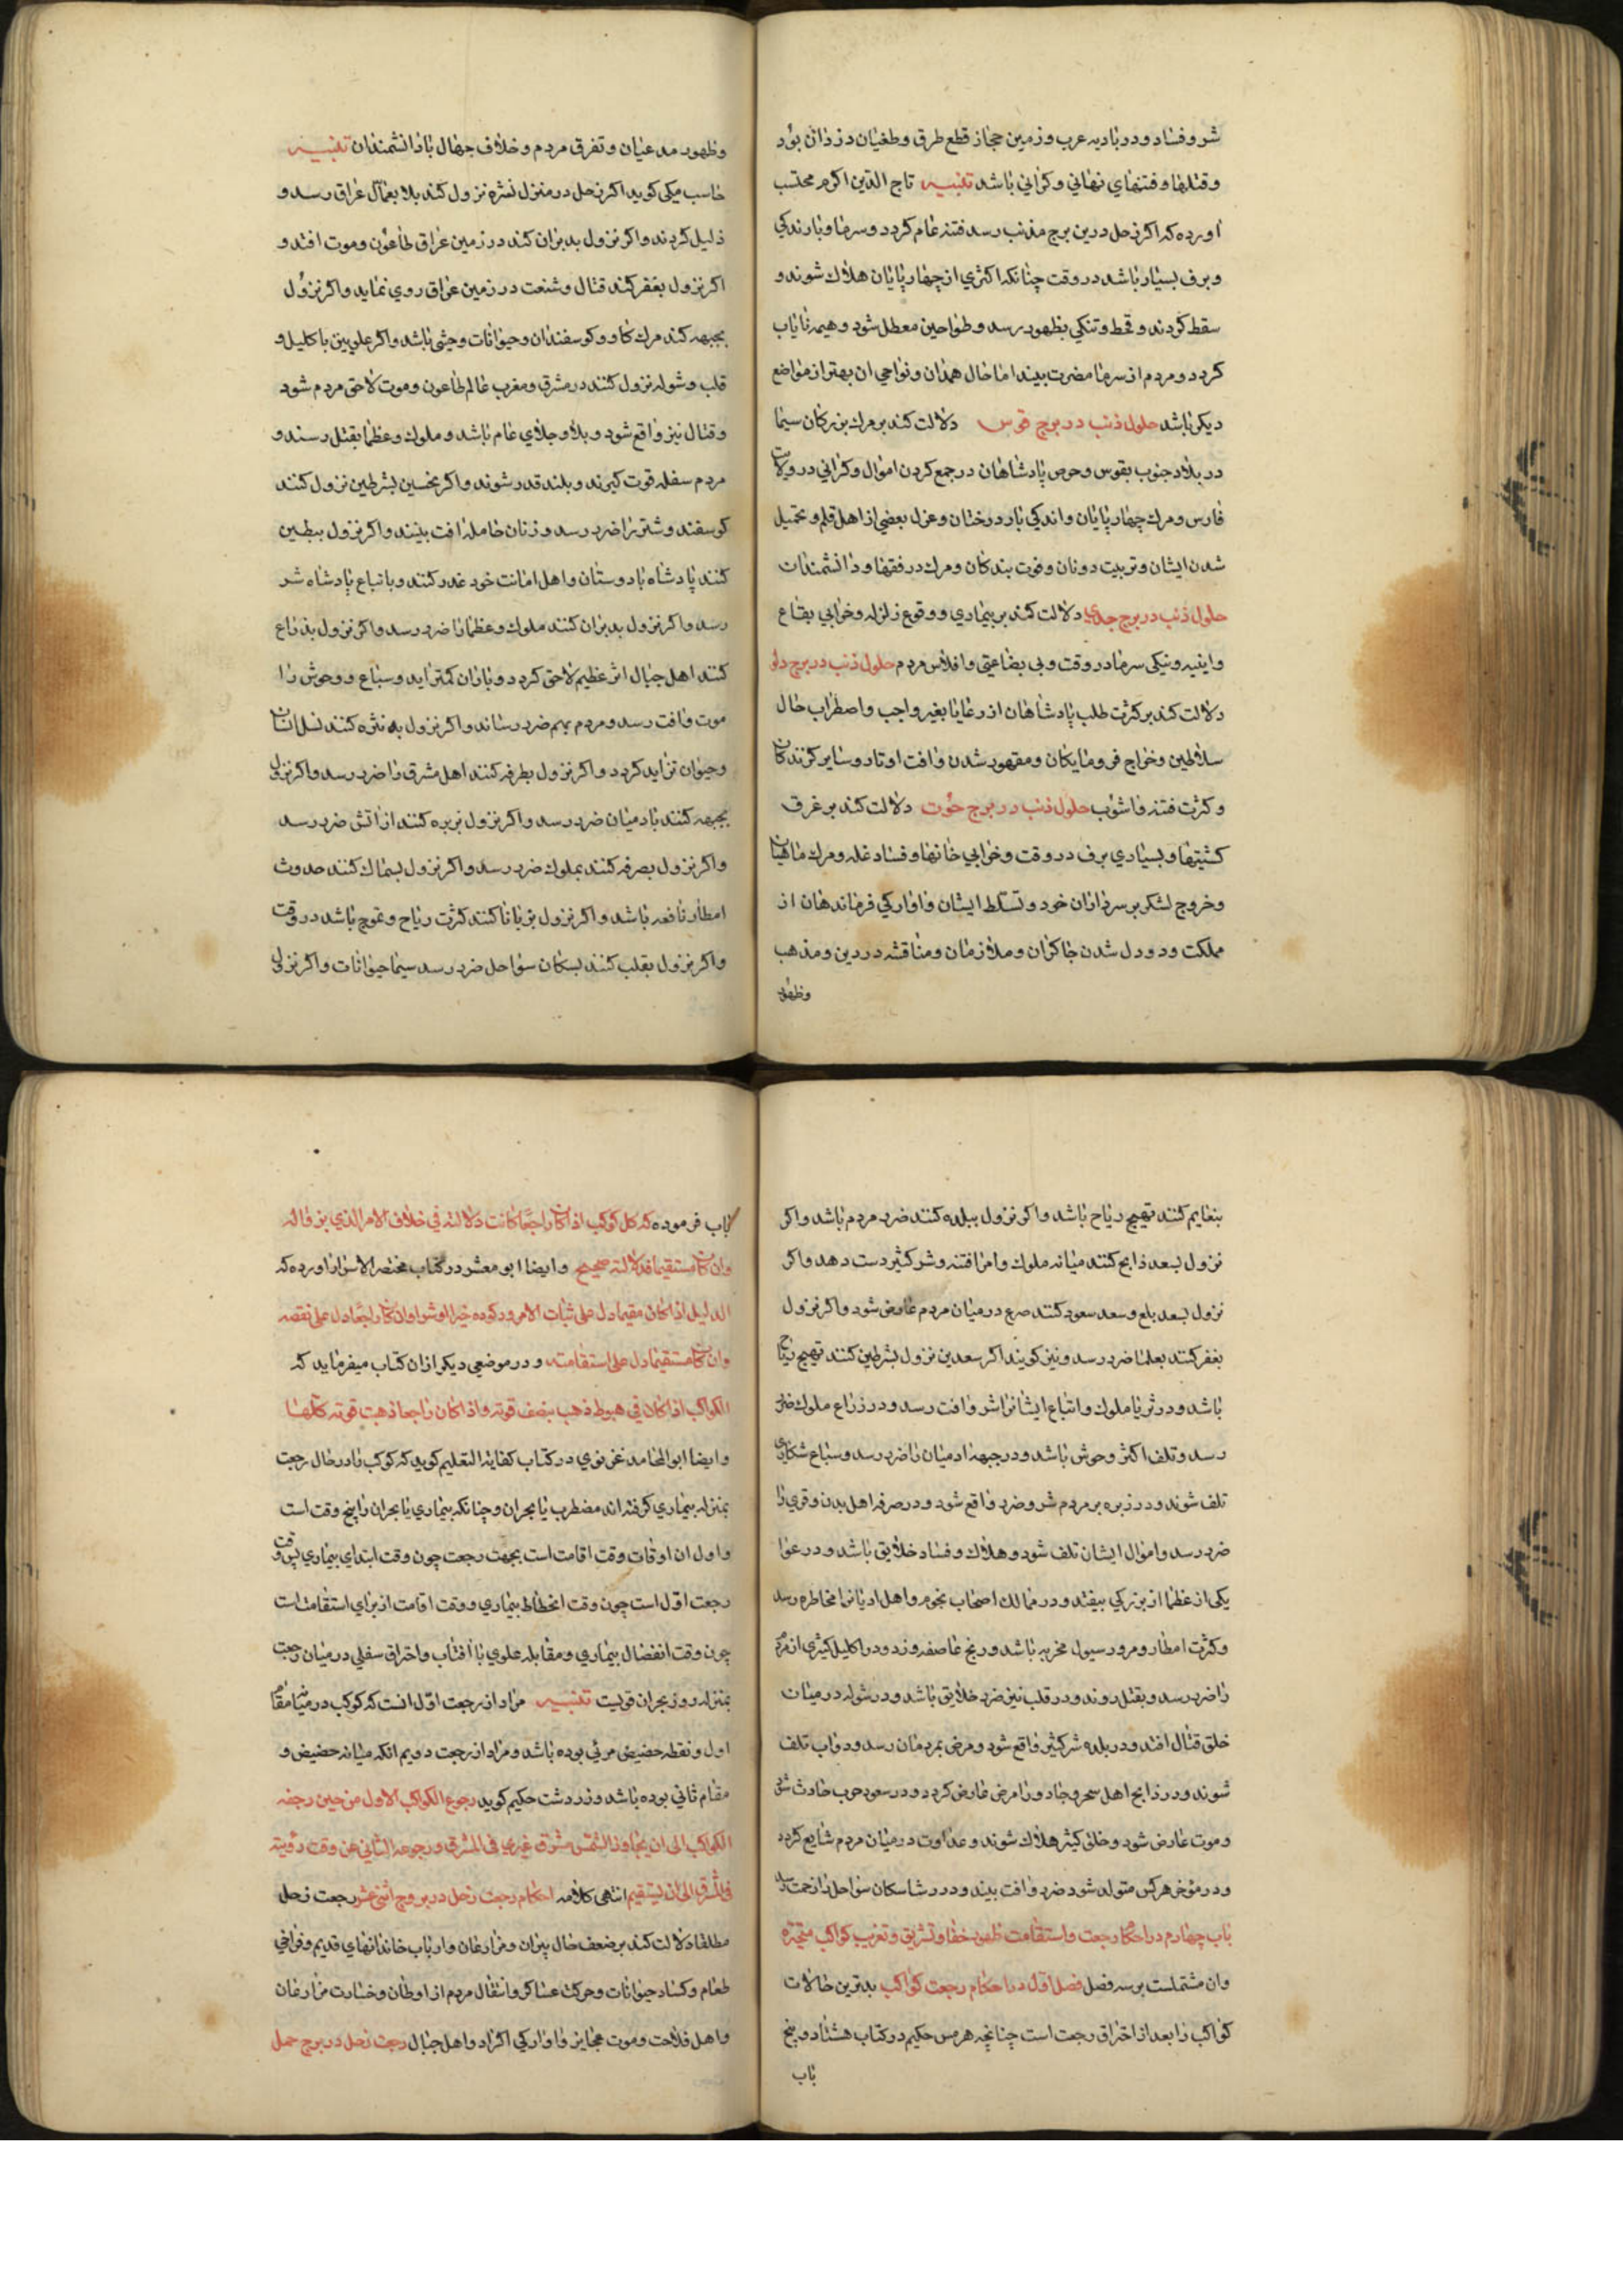 شر و فساد و در بادیه عرب و زمین حجاز قطع طرق و طغیان دزدان بود
و قتلها و فتنهای نهانی و کرانی باشد تنبیه تاج الدین اکرم محتسب
اورده که اکر زحل درین برج مذنب رسد فتنه عام کردد و سرما و بارندکی
و برف بسیار باشد در وقت چنانکه اکثری از چهارپایان هلاک شوند و
سقط کردند و قحط و تنکی بظهور رسد و طواحین معطل شود و هیمه نایاب
کردد و مردم از سرما مضرت بیند اما حال همدان و نواحی ان بهتر از مواضع
دیکر باشد حلول ذنب در برج قوس دلالت کند بر مرک بزرکان سیما
در بلاد جنوب بقوس و حرص پادشاهان در جمع کردن اموال و کرانی در ولایت
فارس و مرک چهارپایان و اندکی بار درختان و عزل بعضی از اهل قلم و تحمیل
شدن ایشان و تربیت دونان و فوت بندکان و مرک در فقها و دانشمندان
حلول ذنب در برج جدی دلالت کند بر بیماری و وقوع زلزله و خرابی بقاع
و ابنیه و نیکی سرما در وقت و بی بضاعتی و افلاس مردم حلول ذنب در برج دلو
دلالت کند بر کثرت طلب پادشاهان از رعایا بغیر واجب و اضطراب حال
سلاطین و خراج فرومایکان و مقهور شدن و افت اوتار و سایر کزندکان
و کثرت فتنه و اشوب حلول ذنب در برج حوت دلالت کند بر غرق
کشتیها و بسیاری برف در وقت و خرابی خانها و فساد غله و مرک ماهیان
و خروج لشکر بر سرداران خود و تسلط ایشان و اوارکی فرماندهان از
مملکت و دودل شدن چاکران و ملازمان و مناقشه در دین و مذهب
وظهور
وظهور مدعیان و تفرق مردم و خلاف جهال با دانشمندان تنبیه
حاسب میکی کوید اکر زحل در منزل نثره نزول کند بلا بعمال عراق رسد و
ذلیل کردند و اکر نزول بدبران کند در زمین عراق طاعون و موت افتد و
اکر نزول بغفر کند قتال و شنعت در زمین عراق روی نماید و اکر نزول
بجبهه کند مرک کاو و کوسفندان و حیوانات وحشی باشد و اکر علویین باکلیل و
قلب و شوله نزول کنند در مشرق و مغرب عالم طاعون و موت لاحق مردم شود
و قتال نیز واقع شود و بلا و جلای عام باشد و ملوک و عظما بقتل رسند و
مردم سفله قوت کیرند و بلند قدر شوند و اکر نحسین بشرطین نزول کنند
کوسفند و شتر را ضرر رسد و زنان حامله افت بینند و اکر نزول ببطین
کنند پادشاه با دوستان و اهل امانت خود غدر کنند و باتباع پادشاه شر
رسد و اکر نزول بدبران کنند ملوک و عظما را ضرر رسد و اکر نزول بذراع
کنند اهل جبال اثر عظیم لاحق کردد و باران کمتر اید و سباع و وحوش را
موت و افت رسد و مردم بهم ضرر رسانند و اکر نزول به نثره کنند نسل انسان
و حیوان تزاید کردد و اکر نزول بطرفه کنند اهل مشرق را ضرر رسد و اکر نزول
بجبهه کنند بادمیان ضرر رسد و اکر نزول بزبره کنند از اتش ضرر رسد
و اکر نزول بصرفه کنند بملوک ضرر رسد و اکر نزول بسماک کنند حدوث
امطار نافعه باشد و اکر نزول بزبانا کنند کثرت ریاح و تموج باشد در وقت
و اکر نزول بقلب کنند بسکان سواحل ضرر رسد سیما حیوانات و اکر نزول
بنعایم کنند تهییج ریاح باشد و اکر نزول ببلده کنند ضرر مردم باشد و اکر
نزول بسعد ذابح کنند میانه ملوک و امرا فتنه و شر کثیر دست دهد و اکر
نزول بسعد بلع و سعد سعود کنند صرع در میان مردم عارض شود و اکر نزول
بغفر کنند بعلما ضرر رسد و نیز کویند اکر سعدین نزول بشرطین کنند تهییج ریاح
باشد و در ثریا ملوک و اتباع ایشانرا شر و افت رسد و در ذراع ملوک ضرر
رسد و تلف اکثر وحوش باشد و در جبهه ادمیان را ضرر رسد و سباع شکاری
تلف شوند و در زبره بر مردم شر و ضرر واقع شود و در صرفه اهل بدن و قری را
ضرر رسد و اموال ایشان تلف شود و هلاک و فساد خلایق باشد و در عوا
یکی از عظما از بزرکی بیفتد و در ممالک اصحاب نجوم و اهل ادیانرا مخاطره رسد
و کثرت امطار و مرور سیول مخربه باشد و ریح عاصفه وزد و در اکلیل کثیری از مردم
را ضرر رسد و بقتل روند و در قلب نیز ضرر خلایق باشد و در شوله در میان
خلق قتال افتد و در بلده شر کثیر واقع شود و مرض بمردمان رسد و دواب تلف
شوند و در ذابح اهل سحر و جادو را مرض عارض کردد و در سعود حرب حادث شود
و موت عارض شود و خلق کثیر هلاک شوند و عداوت در میان مردم شایع کردد
و در مؤخر هر کس متولد شود ضرر و افت بیند و در رشا سکان سواحل را زحمت رسد
باب چهارم در احکام رجعت و استقامت ظهور خفا و تشریق و تغریب کواکب متحیره
و ان مشتملست بر سه فصل فصل اول در احکام رجعت کواکب بدترین حالات
کواکب را بعد از احتراق رجعت است چنانچه هرمس حکیم در کتاب هشتاد و پنج
باب
باب فرموده که کل کوکب اذا کان راجعا کانت دلالته فی خلاف الامر الذی بز قاله
وان کان مستقیما فدلالته صحیح و ایضا ابو معشر در کتاب مختصر الاسرار اورده که
الدلیل اذا کان مقیما دل علی ثبات الامر و رکوده خیرا او شرا وان کان راجعا دل علی نقصه
وان کان مستقیما دل علی استقامته و در موضعی دیکر از ان کتاب میفرماید که
الکواکب اذا کان فی هبوط ذهب بنصف قوته و اذا کان راجعا ذهبت قوته کلها
و ایضا ابو المحامد غزنوی در کتاب کفایة التعلیم کوید که کوکب را در حال رجعت
بمنزله بیماری کرفته اند مضطرب یا بحران و چنانکه بیماری با بحران را پنج وقت است
و اول ان اوقات وقت اقامت است بجهت رجعت چون وقت ابتدای بیماری پس وقت
رجعت اول است چون وقت انحطاط بیماری و وقت اقامت از برای استقامت است
چون وقت انفصال بیماری و مقابله علوی با افتاب و احتراق سفلی در میان رجعت
بمنزله روز بحران قویست تنبیه مراد از رجعت اول انست که کوکب در میان مقام
اول و نقطه حضیض مرئی بوده باشد و مراد از رجعت دویم انکه میانه حضیض و
مقام ثانی بوده باشد و زردشت حکیم کوید رجوع الکواکب الاول من حین رجفه
الکواکب الی ان یجاوز الشمس مشرق غیری فی المشرق و رجوعه الثانی عن وقت رؤیته
فی المشرق الی ان یستقیم انتهی کلامه احکام رجعت زحل در بروج اثنی عشر رجعت زحل
مطلقا دلالت کند بر ضعف حال پیران و مزارعان و ارباب خاندانهای قدیم و فراخی
طعام و کساد حیوانات و حرکت عساکر و انتقال مردم از اوطان و خسارت مزارعان
و اهل فلاحت و موت عجایز و اوارکی اکراد و اهل جبال رجعت زحل در برج حمل